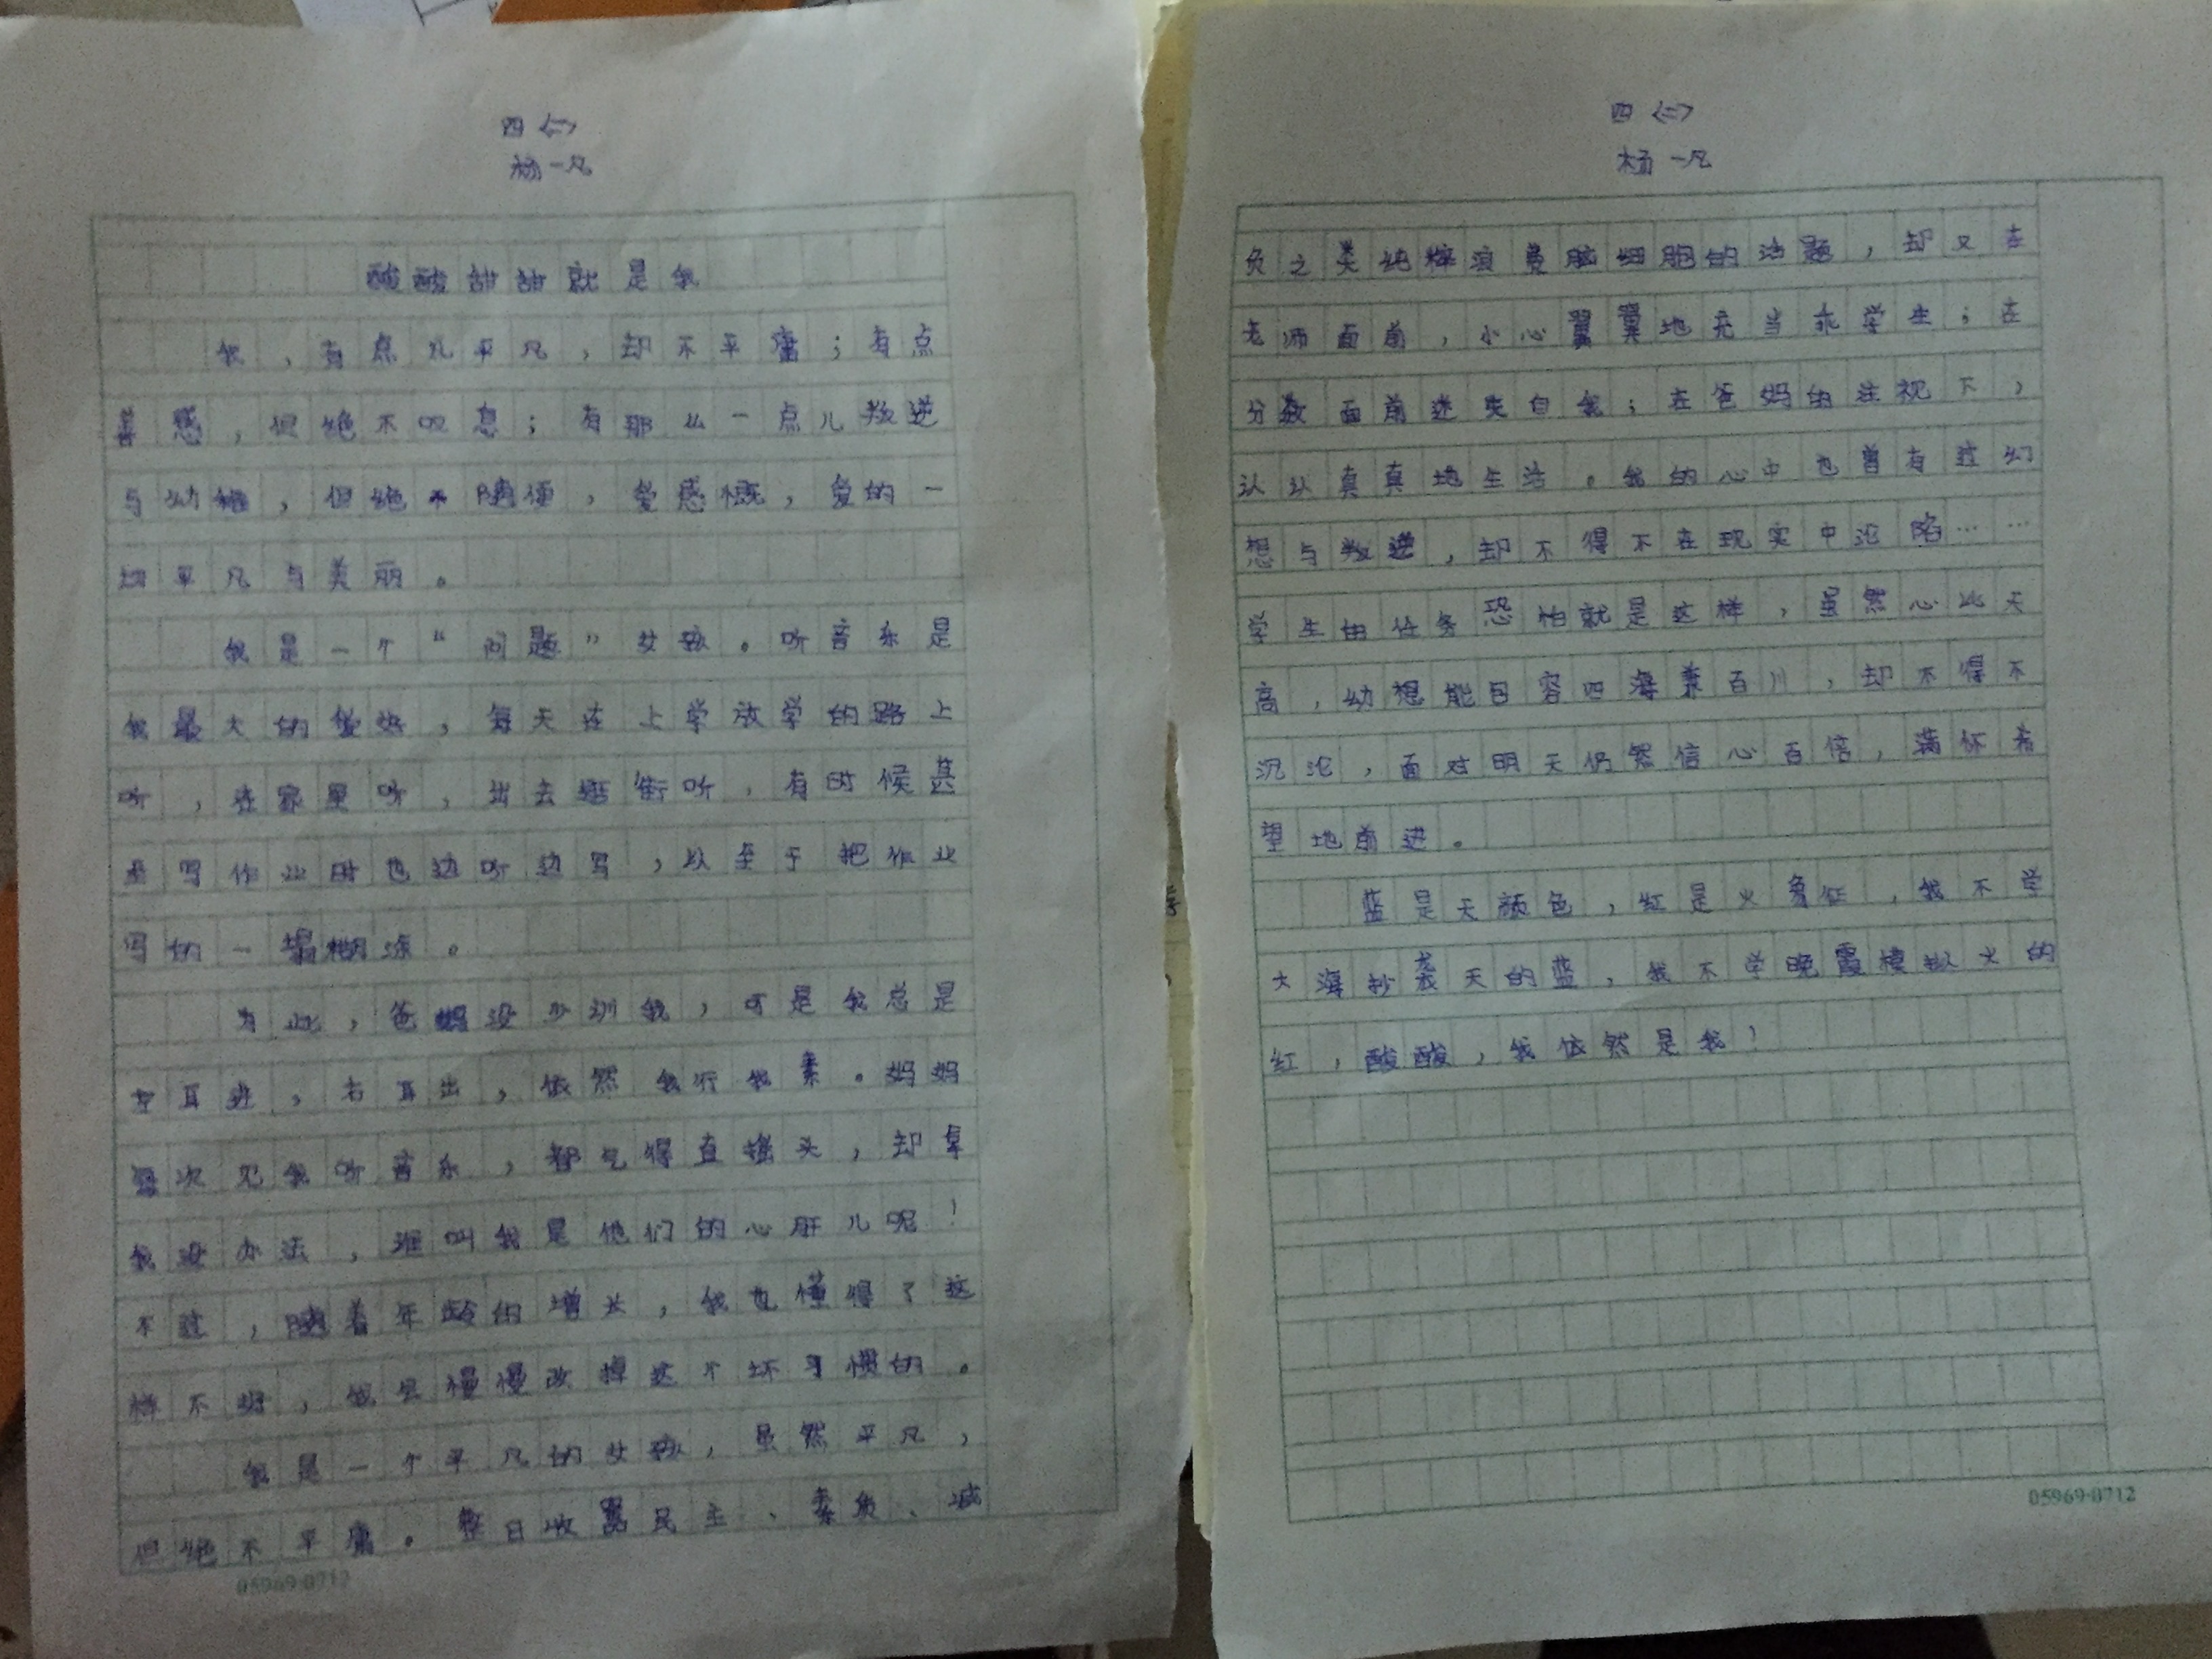 四(二)
杨一凡
酸酸甜甜就是我
我,有点儿平凡,却不平庸;有点
善感,但绝不叹息;有那么一点儿叛逆
与幼稚,但绝不随便,爱感慨,爱的一
切平凡与美丽。
我是一个“问题”女孩。听音乐是
我最大的爱好,每天在上学放学的路上
听,在家里听,出去逛街听,有时候甚
至写作业时也边听边写,以至于把作业
写的一塌糊涂。
为此,爸妈没少训我,可是我总是
左耳进,右耳出,依然我行我素。妈妈
每次见我听音乐,都气得直摇头,却拿
我没办法,谁叫我是他们的心肝儿呢!
不过,随着年龄的增长,我也懂得了这
样不好,我会慢慢改掉这个坏习惯的。
我是一个平凡的女孩,虽然平凡,
但绝不平庸。整日叫嚣民主、素质、减
05969-0712
四(二)
杨一凡
负之类纯粹浪费脑细胞的话题,却又在
老师面前,小心翼翼地充当乖学生;在
分数面前迷失自我;在爸妈的注视下,
认认真真地生活。我的心中也曾有过幻
想与叛逆,却不得不在现实中沦陷……
学生的任务恐怕就是这样,虽然心比天
高,幼想能包容四海兼百川,却不得不
沉沦,面对明天仍然信心百倍,满怀希
望地前进。
蓝是天颜色,红是火象征,我不学
大海抄袭天的蓝,我不学晚霞模拟火的
红,酸酸,我依然是我!
05969-0712